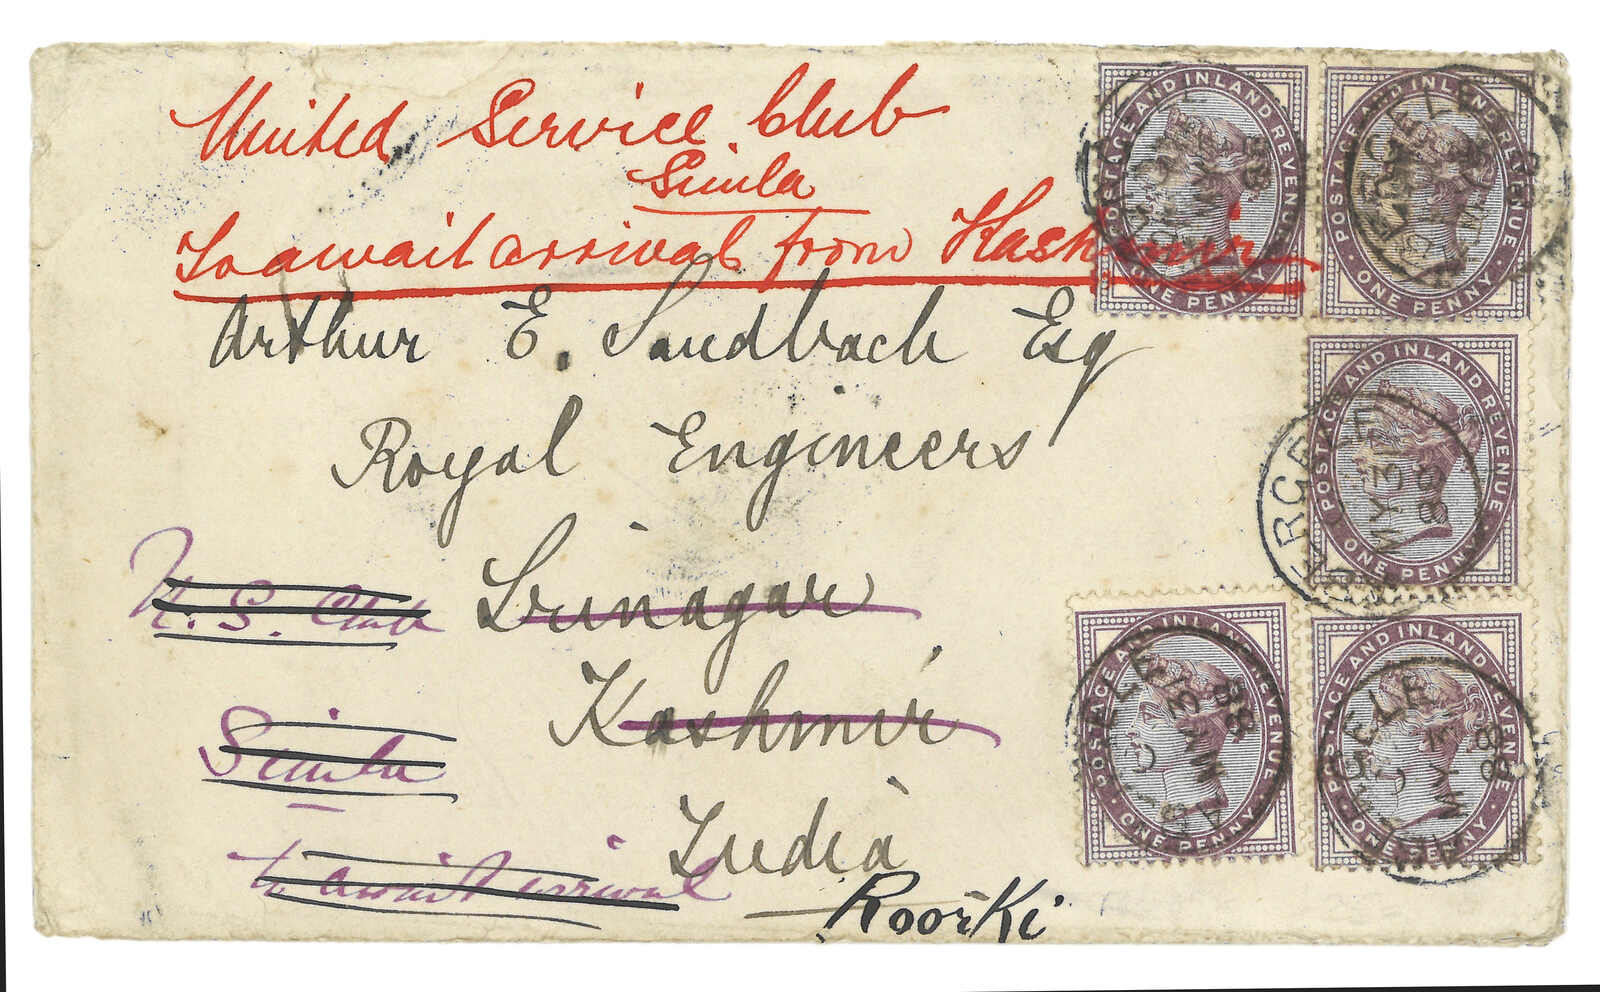 United Service Club
Simla
To await arrival from Kashmir
Arthur E. Sandbach Esq
Royal Engineers
Srinagar
Kashmir
India
U. S. Club
Simla
to await arrival
Roorki
POSTAGE AND INLAND REVENUE
ONE PENNY
POSTAGE AND INLAND REVENUE
ONE PENNY
POSTAGE AND INLAND REVENUE
ONE PENNY
MY 31
88
POSTAGE AND INLAND REVENUE
ONE PENNY
MY 31
88
POSTAGE AND INLAND REVENUE
ONE PENNY
MY 31
88